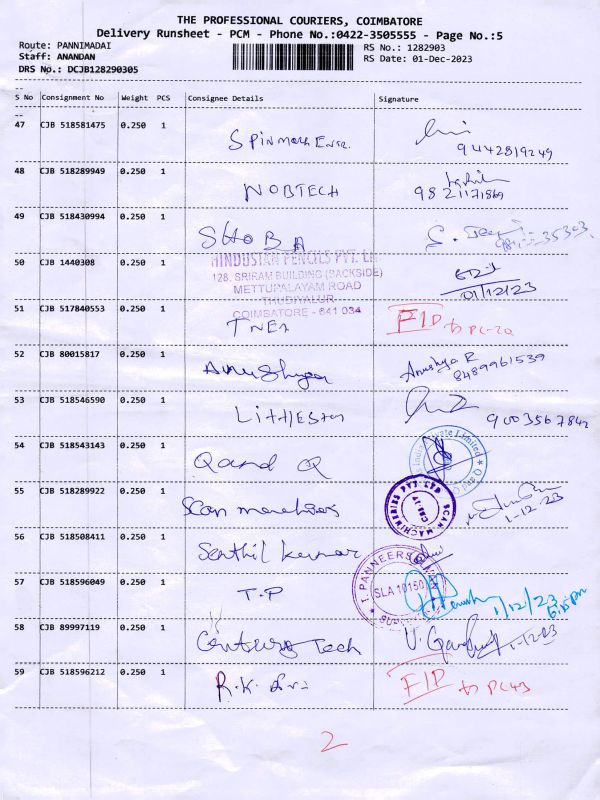 THE PROFESSIONAL COURIERS, COIMBATORE
Delivery Runsheet - PCM - Phone No.:0422-3505555 - Page No.:5
Route: PANNIMADAI
RS No.: 1282903
Staff: ANANDAN
RS Date: 01-Dec-2023
DRS No.: DCJB128290305
S No Consignment No Weight PCS Consignee Details Signature
47 CJB 518581475 0.250 1
9442819249
48 CJB 518289949 0.250 1 NOBTECH
9821171869
49 CJB 518430994 0.250 1 SHOBA
50 CJB 1440308 0.250 1
HINDUSTAN PENCILS PVT. LTD
128, SRIRAM BUILDING (BACKSIDE)
METTUPALAYAM ROAD
THUDIYALUR
COIMBATORE - 641 034
01/12/23
51 CJB 517840553 0.250 1 TNEA FID to PC-20
52 CJB 80015817 0.250 1 Anushya Anushya R
8489961539
53 CJB 518546590 0.250 1
9003567842
54 CJB 518543143 0.250 1 Q and Q
Private Limited
55 CJB 518289922 0.250 1 Scan
SCAN MACHINERIES PVT. LTD.
1-12-23
56 CJB 518508411 0.250 1 Senthil kumar
57 CJB 518596049 0.250 1 T.P
SLA 10150
1/12/23
58 CJB 89997119 0.250 1 Century Tech
1-12-23
59 CJB 518596212 0.250 1 R.K. FID to PC43
2